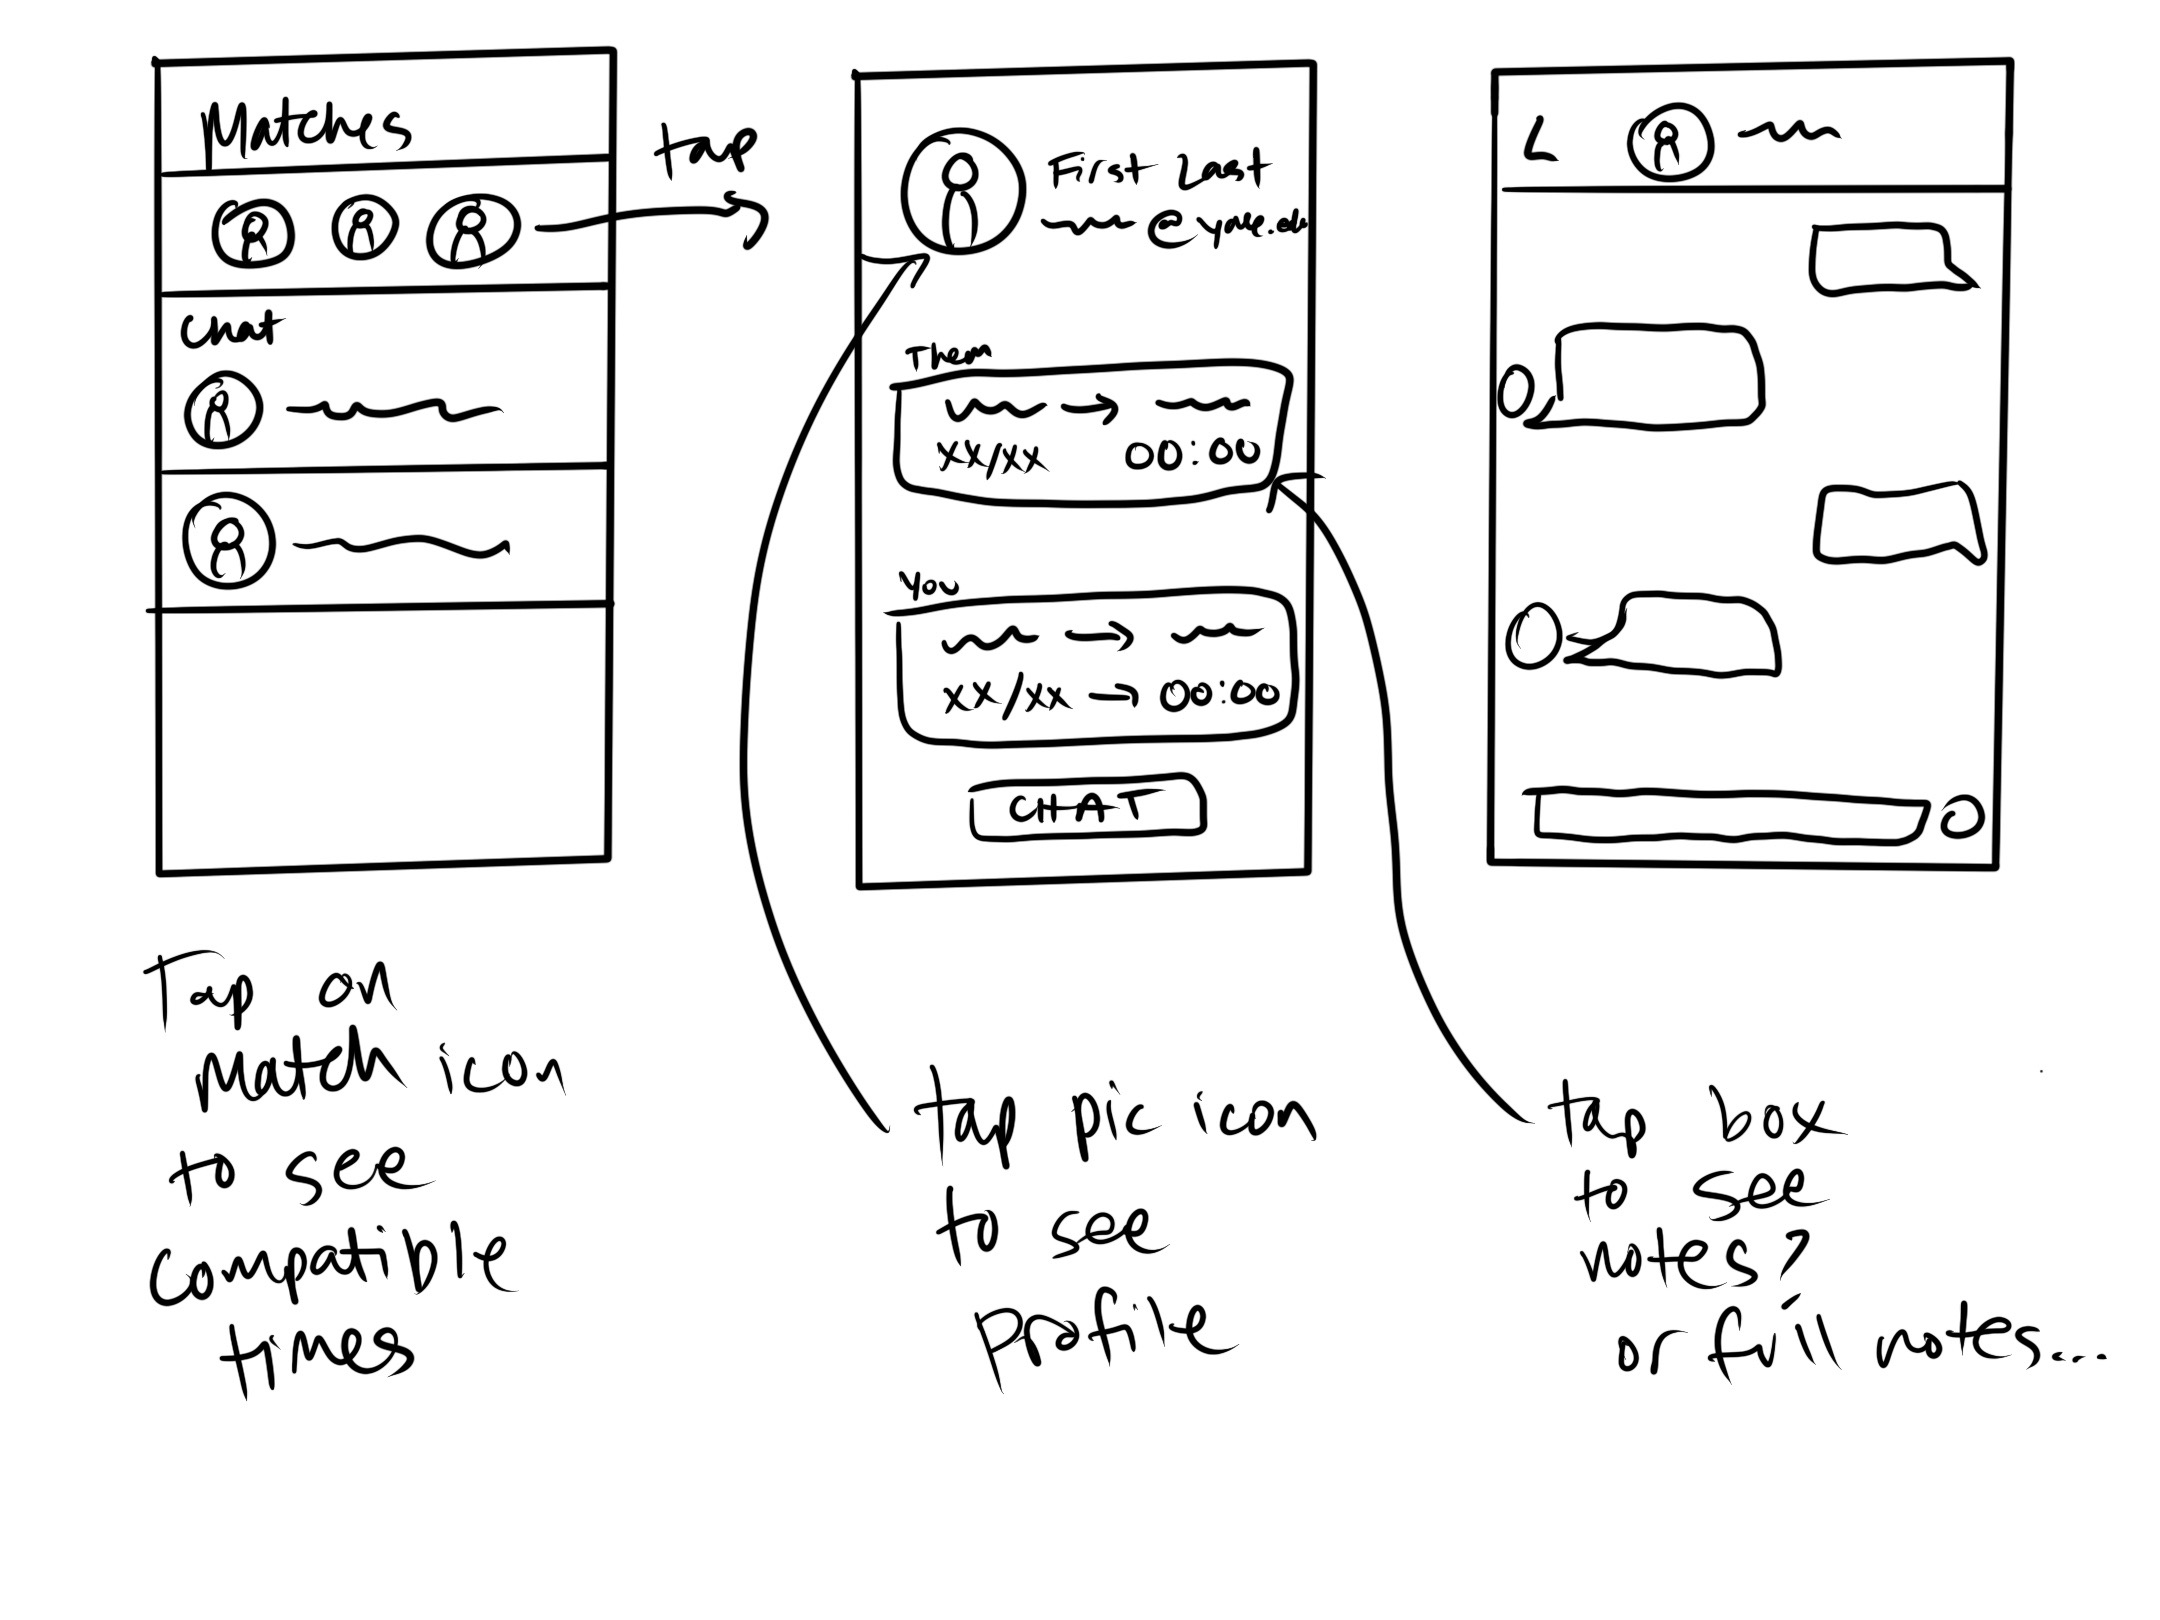 Matches
tap
Chat
First Last
@yale.edu
Them
xx/xx 00:00
You
xx/xx → 00:00
CHAT
Tap on
match icon
to see
compatible
times
tap pic icon
to see
profile
tap box
to see
notes?
or full notes...